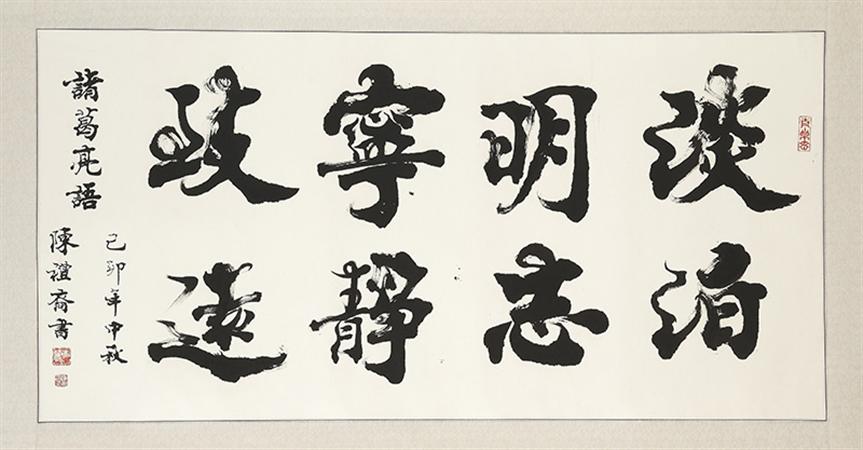 淡泊
明志
寧靜
致遠
諸葛亮語
己卯年中秋
陳禮書